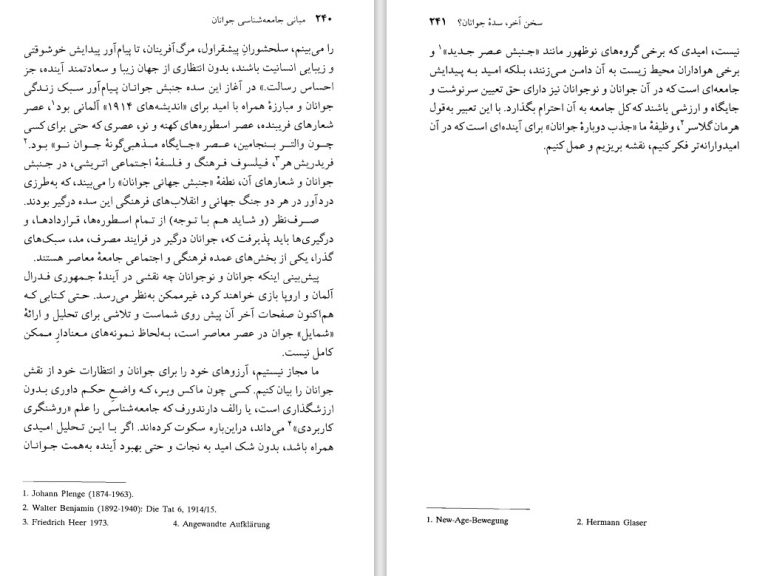 ۲۴۰ مبانی جامعه‌شناسی جوانان
را می‌بینم، سلحشورانِ پیشقراول، مرگ‌آفرینان، تا پیام‌آور پیدایش خوشوقتی
و زیبایی انسانیت باشند، بدون انتظاری از جهان زیبا و سعادتمند آینده، جز
احساس رسالت.» در آغاز این سده جنبش جوانان پیام‌آور سبک زندگی
جوانان و مبارزهٔ همراه با امید برای «اندیشه‌های ۱۹۱۴» آلمانی بود۱، عصر
شعارهای فریبنده، عصر اسطوره‌های کهنه و نو، عصری که حتی برای کسی
چون والتر بنجامین، عصر «جایگاه مذهبی‌گونهٔ جوان نو» بود.۲
فریدریش هر۳، فیلسوف فرهنگ و فلسفهٔ اجتماعی اتریشی، در جنبش
جوانان و شعارهای آن، نطفهٔ «جنبش جهانی جوانان» را می‌بیند، که به‌طرزی
دردآور در هر دو جنگ جهانی و انقلاب‌های فرهنگی این سده درگیر بودند.
صرف‌نظر (و شاید هم با توجه) از تمام اسطوره‌ها، قراردادها، و
درگیری‌ها باید پذیرفت که، جوانان درگیر در فرایند مصرف، مد، سبک‌های
گذرا، یکی از بخش‌های عمده فرهنگی و اجتماعی جامعهٔ معاصر هستند.
پیش‌بینی اینکه جوانان و نوجوانان چه نقشی در آیندهٔ جمهوری فدرال
آلمان و اروپا بازی خواهند کرد، غیرممکن به‌نظر می‌رسد. حتی کتابی که
هم‌اکنون صفحات آخر آن پیش روی شماست و تلاشی برای تحلیل و ارائهٔ
«شمایل» جوان در عصر معاصر است، به‌لحاظ نمونه‌های معنادارِ ممکن
کامل نیست.
ما مجاز نیستیم، آرزوهای خود را برای جوانان و انتظارات خود از نقش
جوانان را بیان کنیم. کسی چون ماکس وبر، که واضعِ حکم داوری بدون
ارزشگذاری است، یا رالف دارندورف که جامعه‌شناسی را علم «روشنگری
کاربردی»۴ می‌داند، دراین‌باره سکوت کرده‌اند. اگر با این تحلیل امیدی
همراه باشد، بدون شک امید به نجات و حتی بهبود آینده به‌همت جوانان
1. Johann Plenge (1874-1963).
2. Walter Benjamin (1892-1940): Die Tat 6, 1914/15.
3. Friedrich Heer 1973. 4. Angewandte Aufklärung
سخن آخر، سدهٔ جوانان؟ ۲۴۱
نیست، امیدی که برخی گروه‌های نوظهور مانند «جنبش عصر جدید»۱ و
برخی هواداران محیط زیست به آن دامن می‌زنند، بلکه امید به پیدایش
جامعه‌ای است که در آن جوانان و نوجوانان نیز دارای حق تعیین سرنوشت و
جایگاه و ارزشی باشند که کل جامعه به آن احترام بگذارد. با این تعبیر به‌قول
هرمان گلاسر۲، وظیفهٔ ما «جذب دوبارهٔ جوانان» برای آینده‌ای است که در آن
امیدوارانه‌تر فکر کنیم، نقشه بریزیم و عمل کنیم.
1. New-Age-Bewegung 2. Hermann Glaser